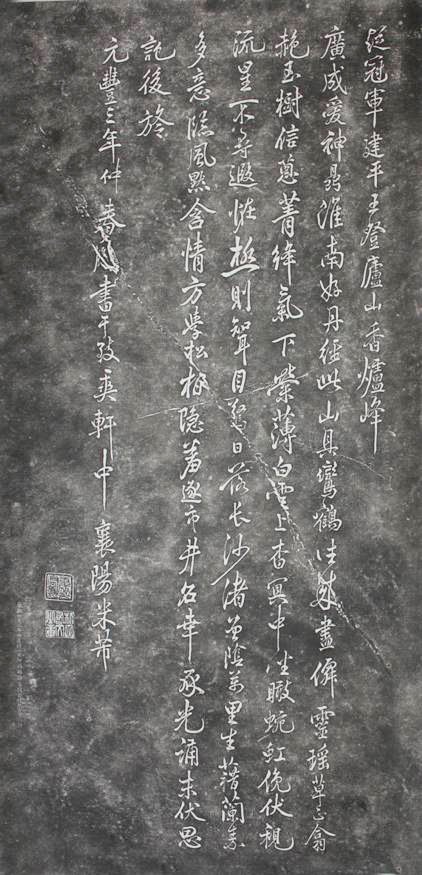 從冠軍建平王登廬山香爐峰
廣成愛神鼎淮南好丹經此山具鸞鶴往來盡僊靈瑤草正翕
赩玉樹信蔥菁絳氣下縈薄白雲上杳冥中坐瞰蜿虹俛伏視
流星不尋遐怪極則知耳目驚日落長沙渚曾陰萬里生藉蘭素
多意臨風默含情方學松柏隱羞逐市井名幸承光誦末伏思
託後旍
元豐三年仲春書于致爽軒中襄陽米芾